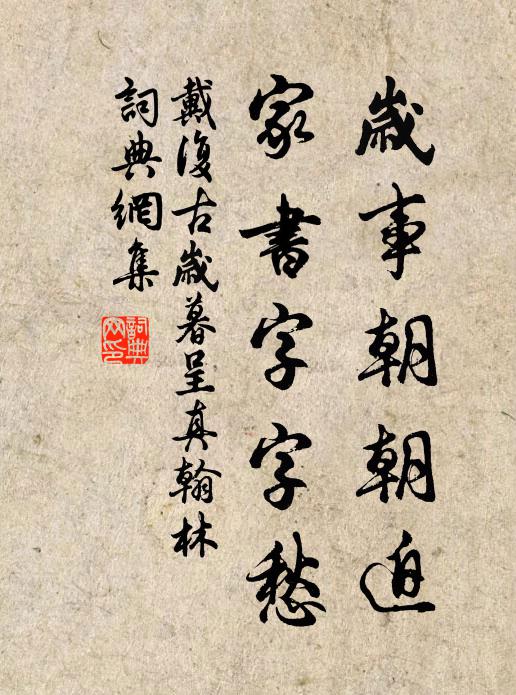 歲事朝朝迫
家書字字愁
戴復古歲暮呈真翰林
詞典網集
詞典
网印